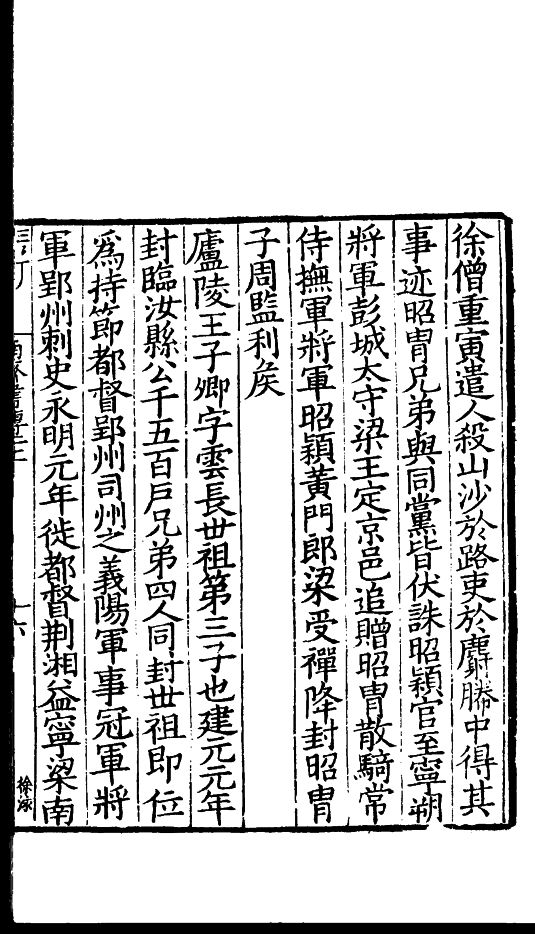 徐僧重寅遣人殺山沙於路吏於麝幐中得其
事迹昭胄兄弟與同黨皆伏誅昭穎官至寧朔
將軍彭城太守梁王定京邑追贈昭胄散騎常
侍撫軍將軍昭穎黃門郎梁受禪降封昭胄
子周監利侯
廬陵王子卿字雲長世祖第三子也建元元年
封臨汝縣公千五百戶兄弟四人同封世祖即位
爲持節都督郢州司州之義陽軍事冠軍將
軍郢州刺史永明元年徙都督荆湘益寧梁南